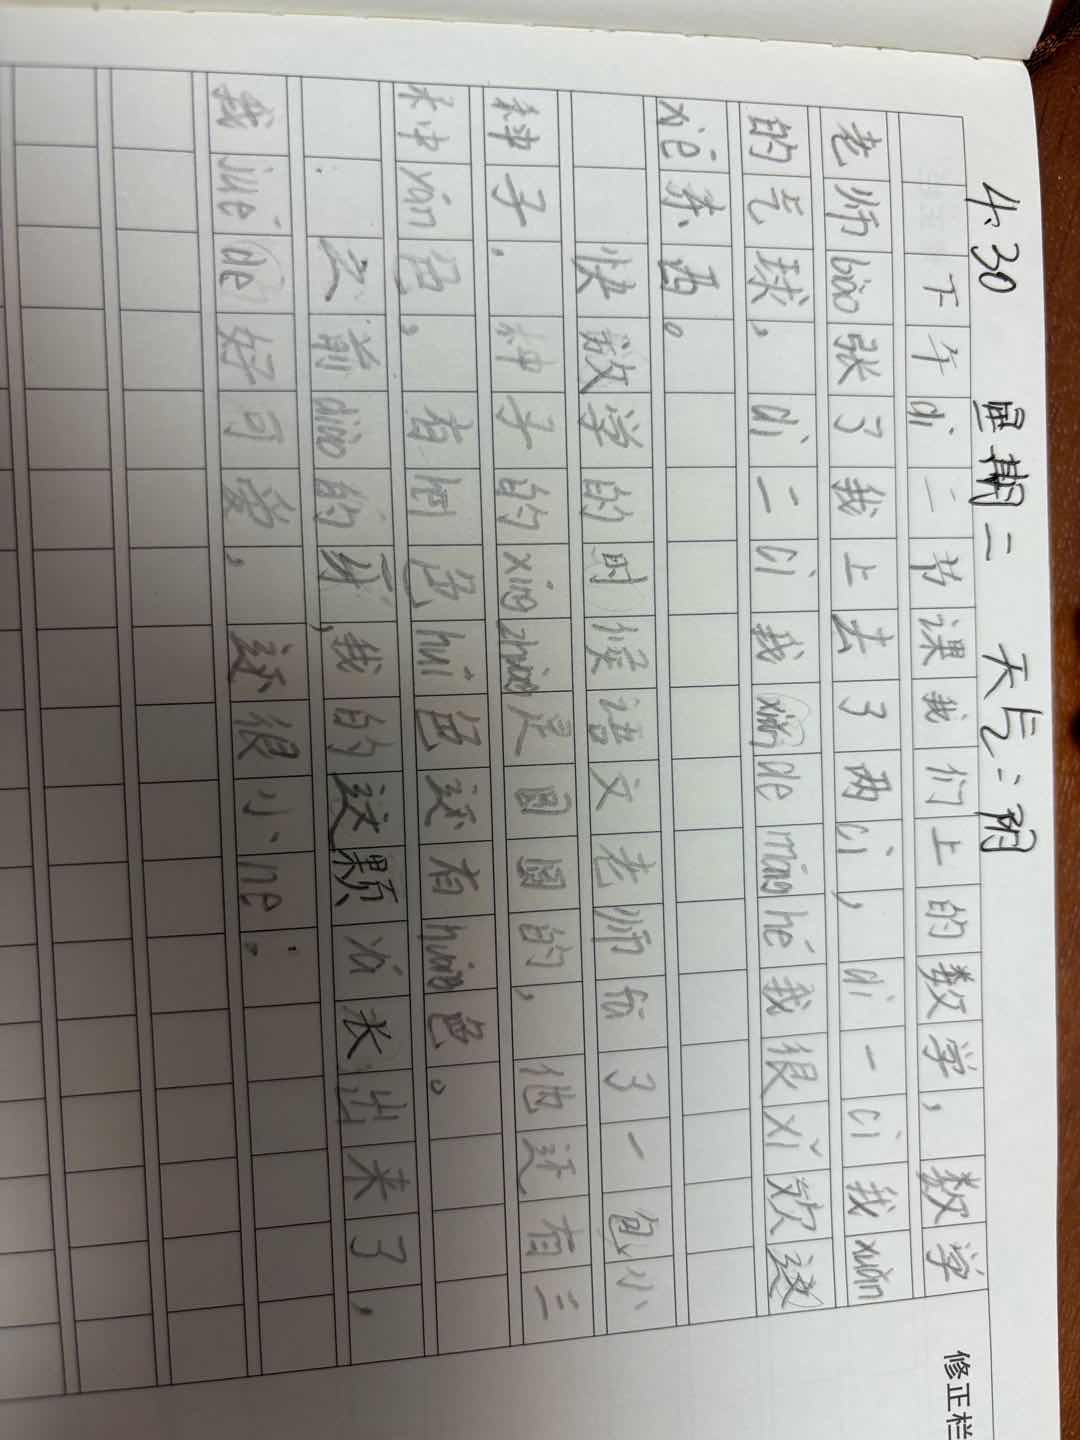 4.30 星期二 天气:阴
下午dì二节课我们上的数学,数学
老师biǎo张了我上去了两cì,dì一cì我xuǎn
的气球,dì二cì我xuǎn de míng hé我很xǐ欢这
xiē东西。
快放学的时候语文老师发了一包小
种子.种子的xíng zhuàng是圆圆的,他还有三
种yán色,有红色huī色还有huáng色。
之前diào的牙,我的这颗牙长出来了,
我jué de好可爱,还很小ne.
修正栏